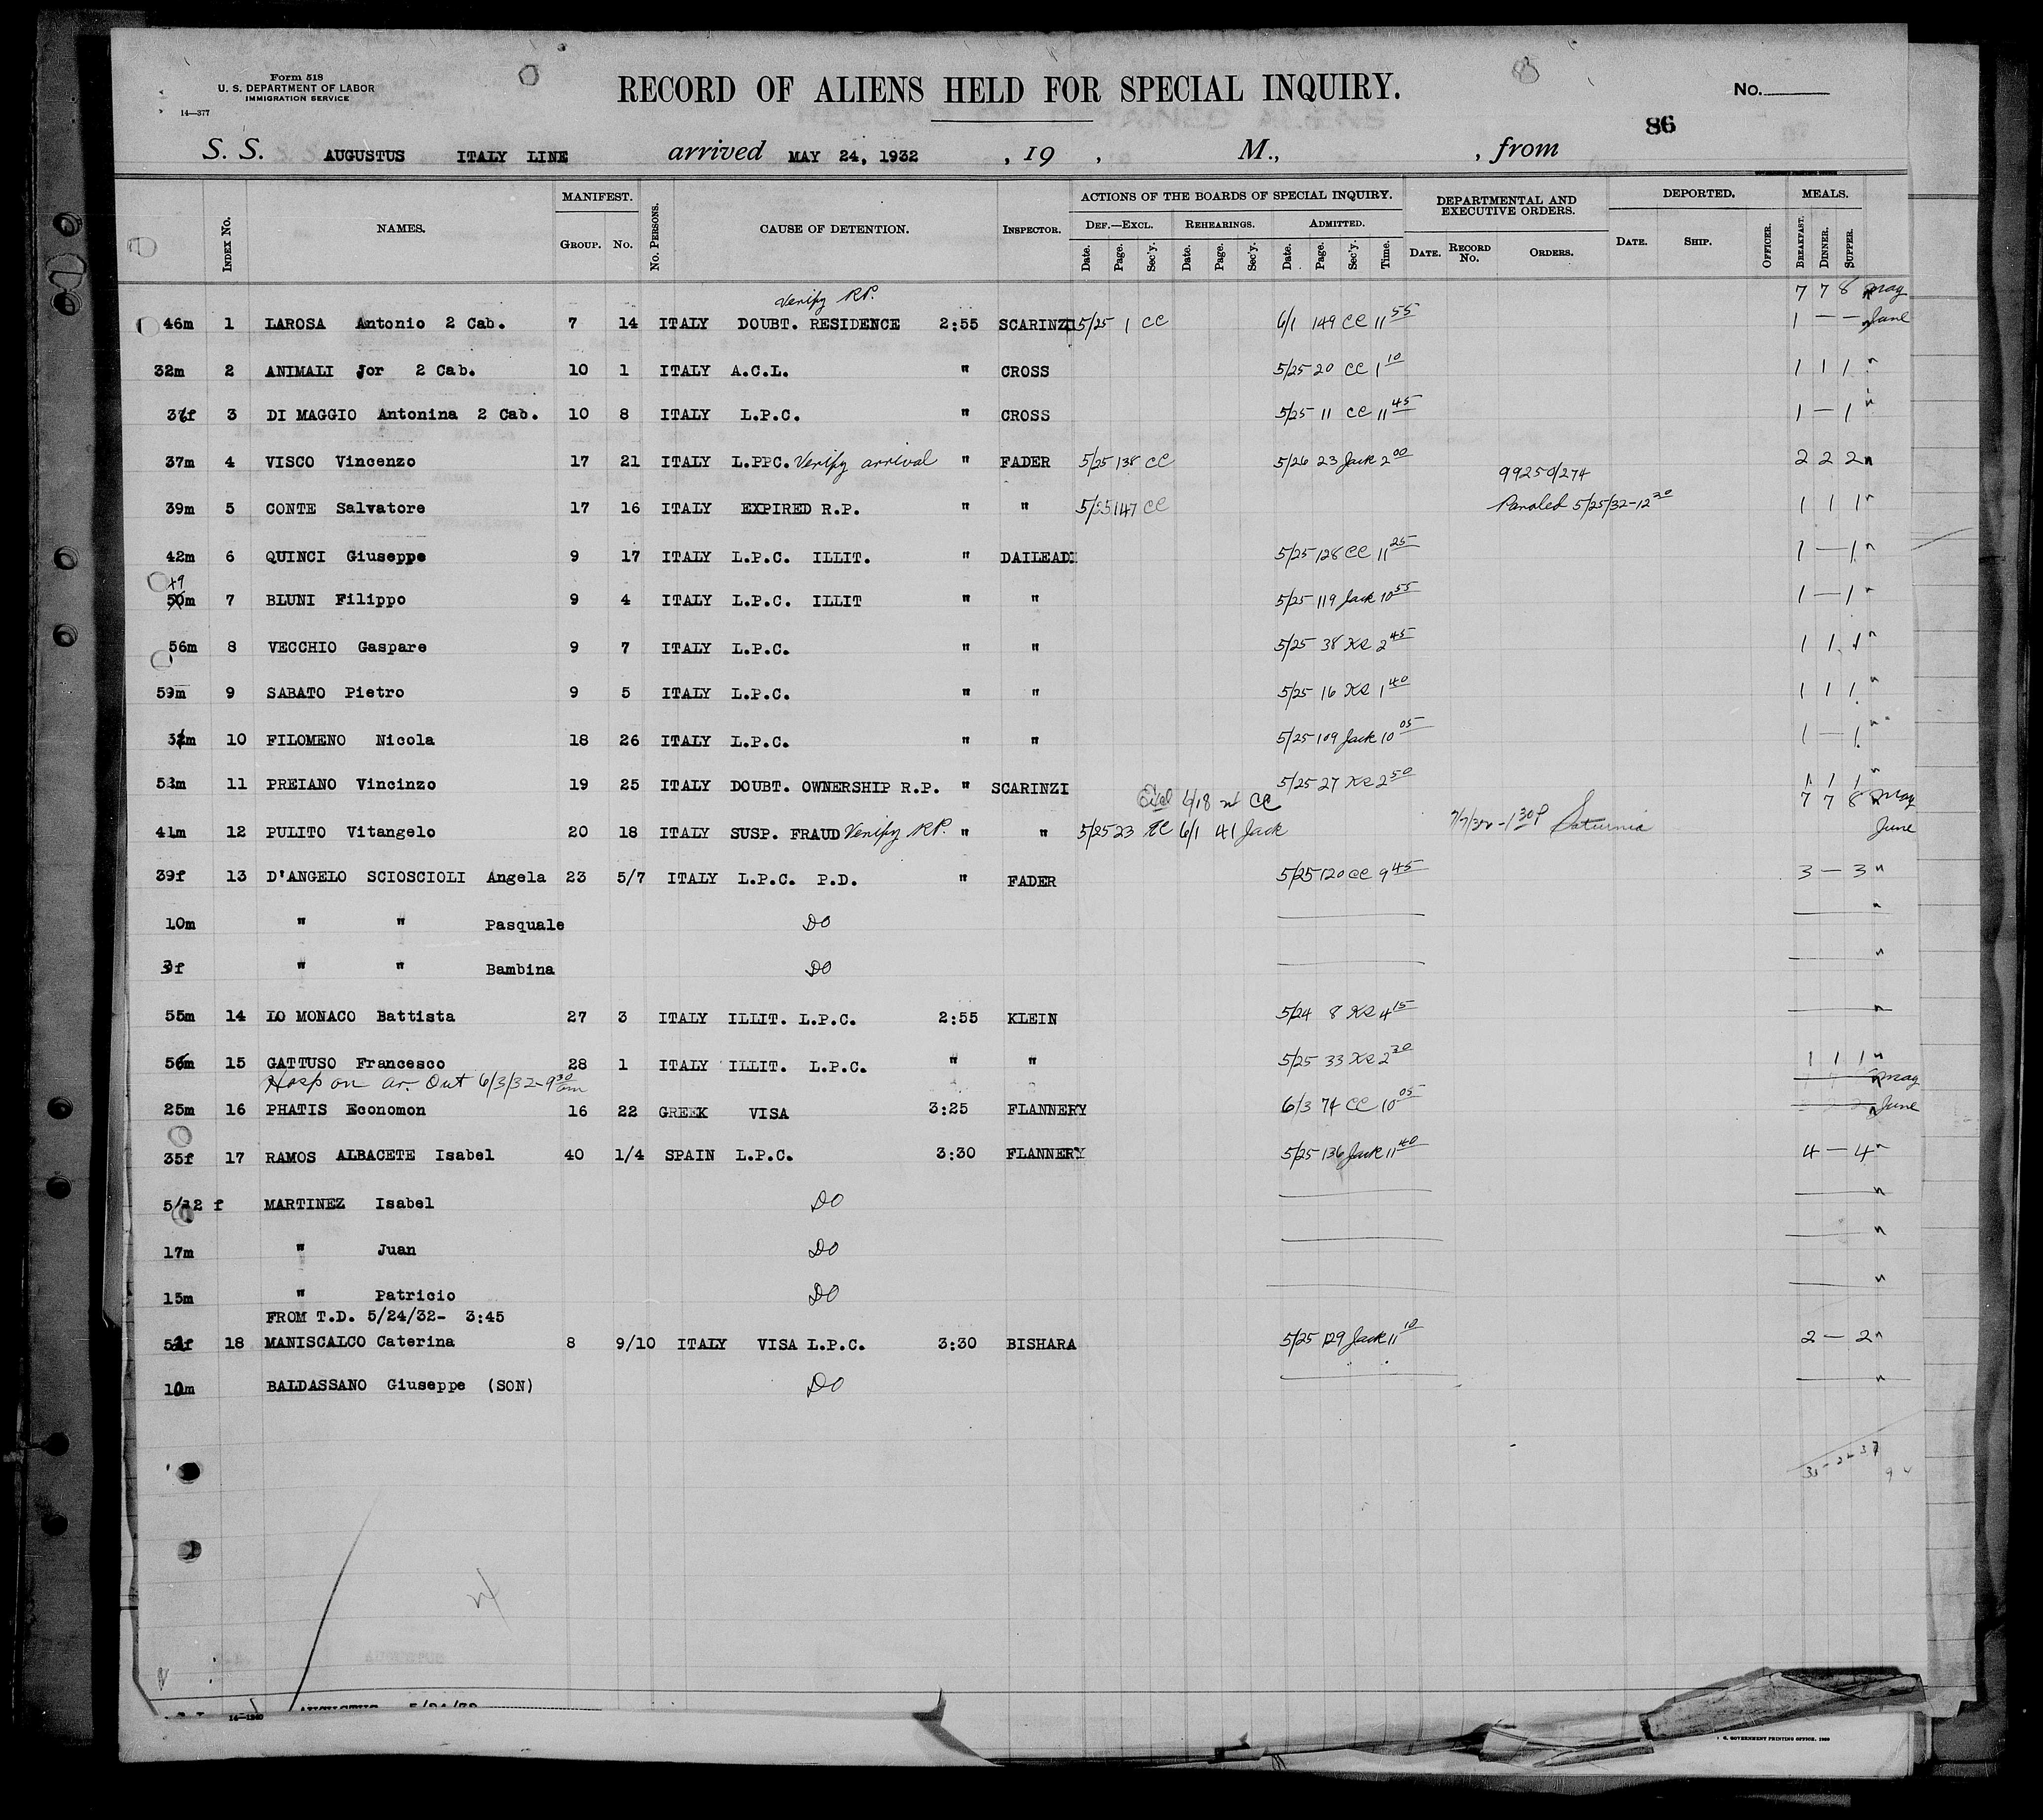 Form 518
U. S. DEPARTMENT OF LABOR
IMMIGRATION SERVICE
14—377
RECORD OF ALIENS HELD FOR SPECIAL INQUIRY.
No.
86
S. S. AUGUSTUS ITALY LINE arrived MAY 24, 1932 , 19 , M., , from
INDEX No. NAMES. MANIFEST. GROUP. No. No. PERSONS. CAUSE OF DETENTION. INSPECTOR. ACTIONS OF THE BOARDS OF SPECIAL INQUIRY. DEF.—EXCL. Date. Page. Sec'y. REHEARINGS. Date. Page. Sec'y. ADMITTED. Date. Page. Sec'y. Time. DEPARTMENTAL AND EXECUTIVE ORDERS. DATE. RECORD No. ORDERS. DEPORTED. DATE. SHIP. OFFICER. MEALS. BREAKFAST. DINNER. SUPPER.
Verify RP. 7 7 8 May
46m 1 LAROSA Antonio 2 Cab. 7 14 ITALY DOUBT. RESIDENCE 2:55 SCARINZI 5/25 1 CC 6/1 149 CC 11 55 1 — — June
32m 2 ANIMALI Jor 2 Cab. 10 1 ITALY A.C.L. " CROSS 5/25 20 CC 1 10 1 1 1 "
f 3 DI MAGGIO Antonina 2 Cab. 10 8 ITALY L.P.C. " CROSS 5/25 11 CC 11 45 1 — 1 "
37m 4 VISCO Vincenzo 17 21 ITALY L.PPC. Verify arrival " FADER 5/25 138 CC 5/26 23 Jack 2 00 2 2 2 "
99250/274
39m 5 CONTE Salvatore 17 16 ITALY EXPIRED R.P. " " 5/25 147 CC Paroled 5/25/32-12 30 1 1 1 "
42m 6 QUINCI Giuseppe 9 17 ITALY L.P.C. ILLIT. " DAILEAD 5/25 128 CC 11 25 1 — 1 "
50m 7 BLUNI Filippo 9 4 ITALY L.P.C. ILLIT " " 5/25 119 Jack 10 55 1 — 1 "
56m 8 VECCHIO Gaspare 9 7 ITALY L.P.C. " " 5/25 38 2 45 1 1 1 "
59m 9 SABATO Pietro 9 5 ITALY L.P.C. " " 5/25 16 1 40 1 1 1 "
m 10 FILOMENO Nicola 18 26 ITALY L.P.C. " " 5/25 109 Jack 10 05 1 — 1 "
m 11 PREIANO Vincinzo 19 25 ITALY DOUBT. OWNERSHIP R.P. " SCARINZI 5/25 27 2 50 1 1 1 "
Excl 6/18 CC 7 7 8 May
41m 12 PULITO Vitangelo 20 18 ITALY SUSP. FRAUD Verify RP. " " 5/25 23 6/1 41 Jack 7/7/32-1 30P Saturnia June
39f 13 D'ANGELO SCIOSCIOLI Angela 23 5/7 ITALY L.P.C. P.D. " FADER 5/25 120 CC 9 45 3 — 3 "
10m " " Pasquale DO "
f " " Bambina DO "
55m 14 LO MONACO Battista 27 3 ITALY ILLIT. L.P.C. 2:55 KLEIN 5/24 8 4 15 "
m 15 GATTUSO Francesco 28 1 ITALY ILLIT. L.P.C. " " 5/25 33 2 30 1 1 1 "
Hosp on ar. Out 6/3/32-9 30 am May
25m 16 PHATIS Economon 16 22 GREEK VISA 3:25 FLANNERY 6/3 74 CC 10 05 June
35f 17 RAMOS ALBACETE Isabel 40 1/4 SPAIN L.P.C. 3:30 FLANNERY 5/25 136 Jack 11 40 4 — 4 "
f MARTINEZ Isabel DO "
17m " Juan DO "
15m " Patricio DO "
FROM T.D. 5/24/32- 3:45
f 18 MANISCALCO Caterina 8 9/10 ITALY VISA L.P.C. 3:30 BISHARA 5/25 129 Jack 11 10 2 — 2 "
10m BALDASSANO Giuseppe (SON) DO "
AUGUSTUS 5/24/32